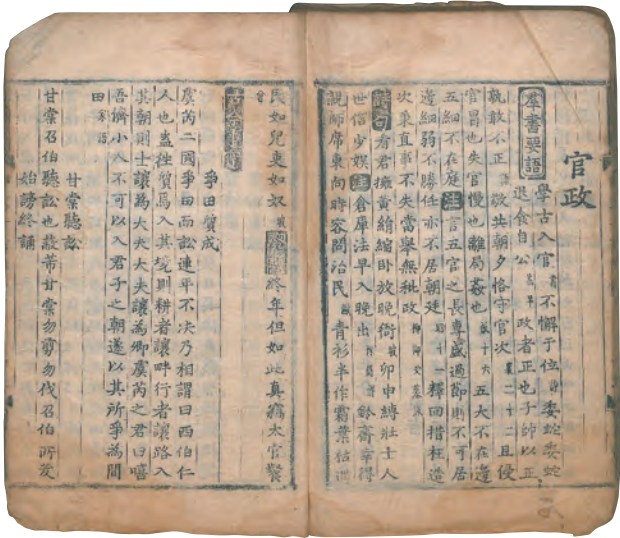 官政
羣書要語 學古入官 書 不懈于位 詩 委蛇委蛇
退食自公 政者正也子帥以正
孰敢不正 敬共朝夕恪守官次 襄二十二 且侵
官冒也失官慢也離局姦也 成十六 五大不在邊
五細不在庭 注 言五官之長專盛過節則不可居
邊細弱不勝任亦不居朝廷 昭十一 釋回措枉造
次秉直事不失當舉無秕政
詩句 看君擁黃紬臥放晚衙 坡 卯申縛壯士人
世信少娛 注 倉庫法早入晚出 鈴齋幸得
親師席東向時容問治民 坡 青衫半作霜葉枯遇
民如兒吏如奴 坡 終年但如此真竊太官餐
古今事實
爭田質成
虞芮二國爭田而訟連年不決乃相謂曰西伯仁
人也盍往質焉入其境則耕者讓畔行者讓路入
其朝則士讓為大夫大夫讓為卿虞芮之君曰嘻
吾儕小人不可以入君子之朝遂以其所爭為閒
田 家語
甘棠聽訟
甘棠召伯聽訟也蔽芾甘棠勿翦勿伐召伯所茇
始謗終誦